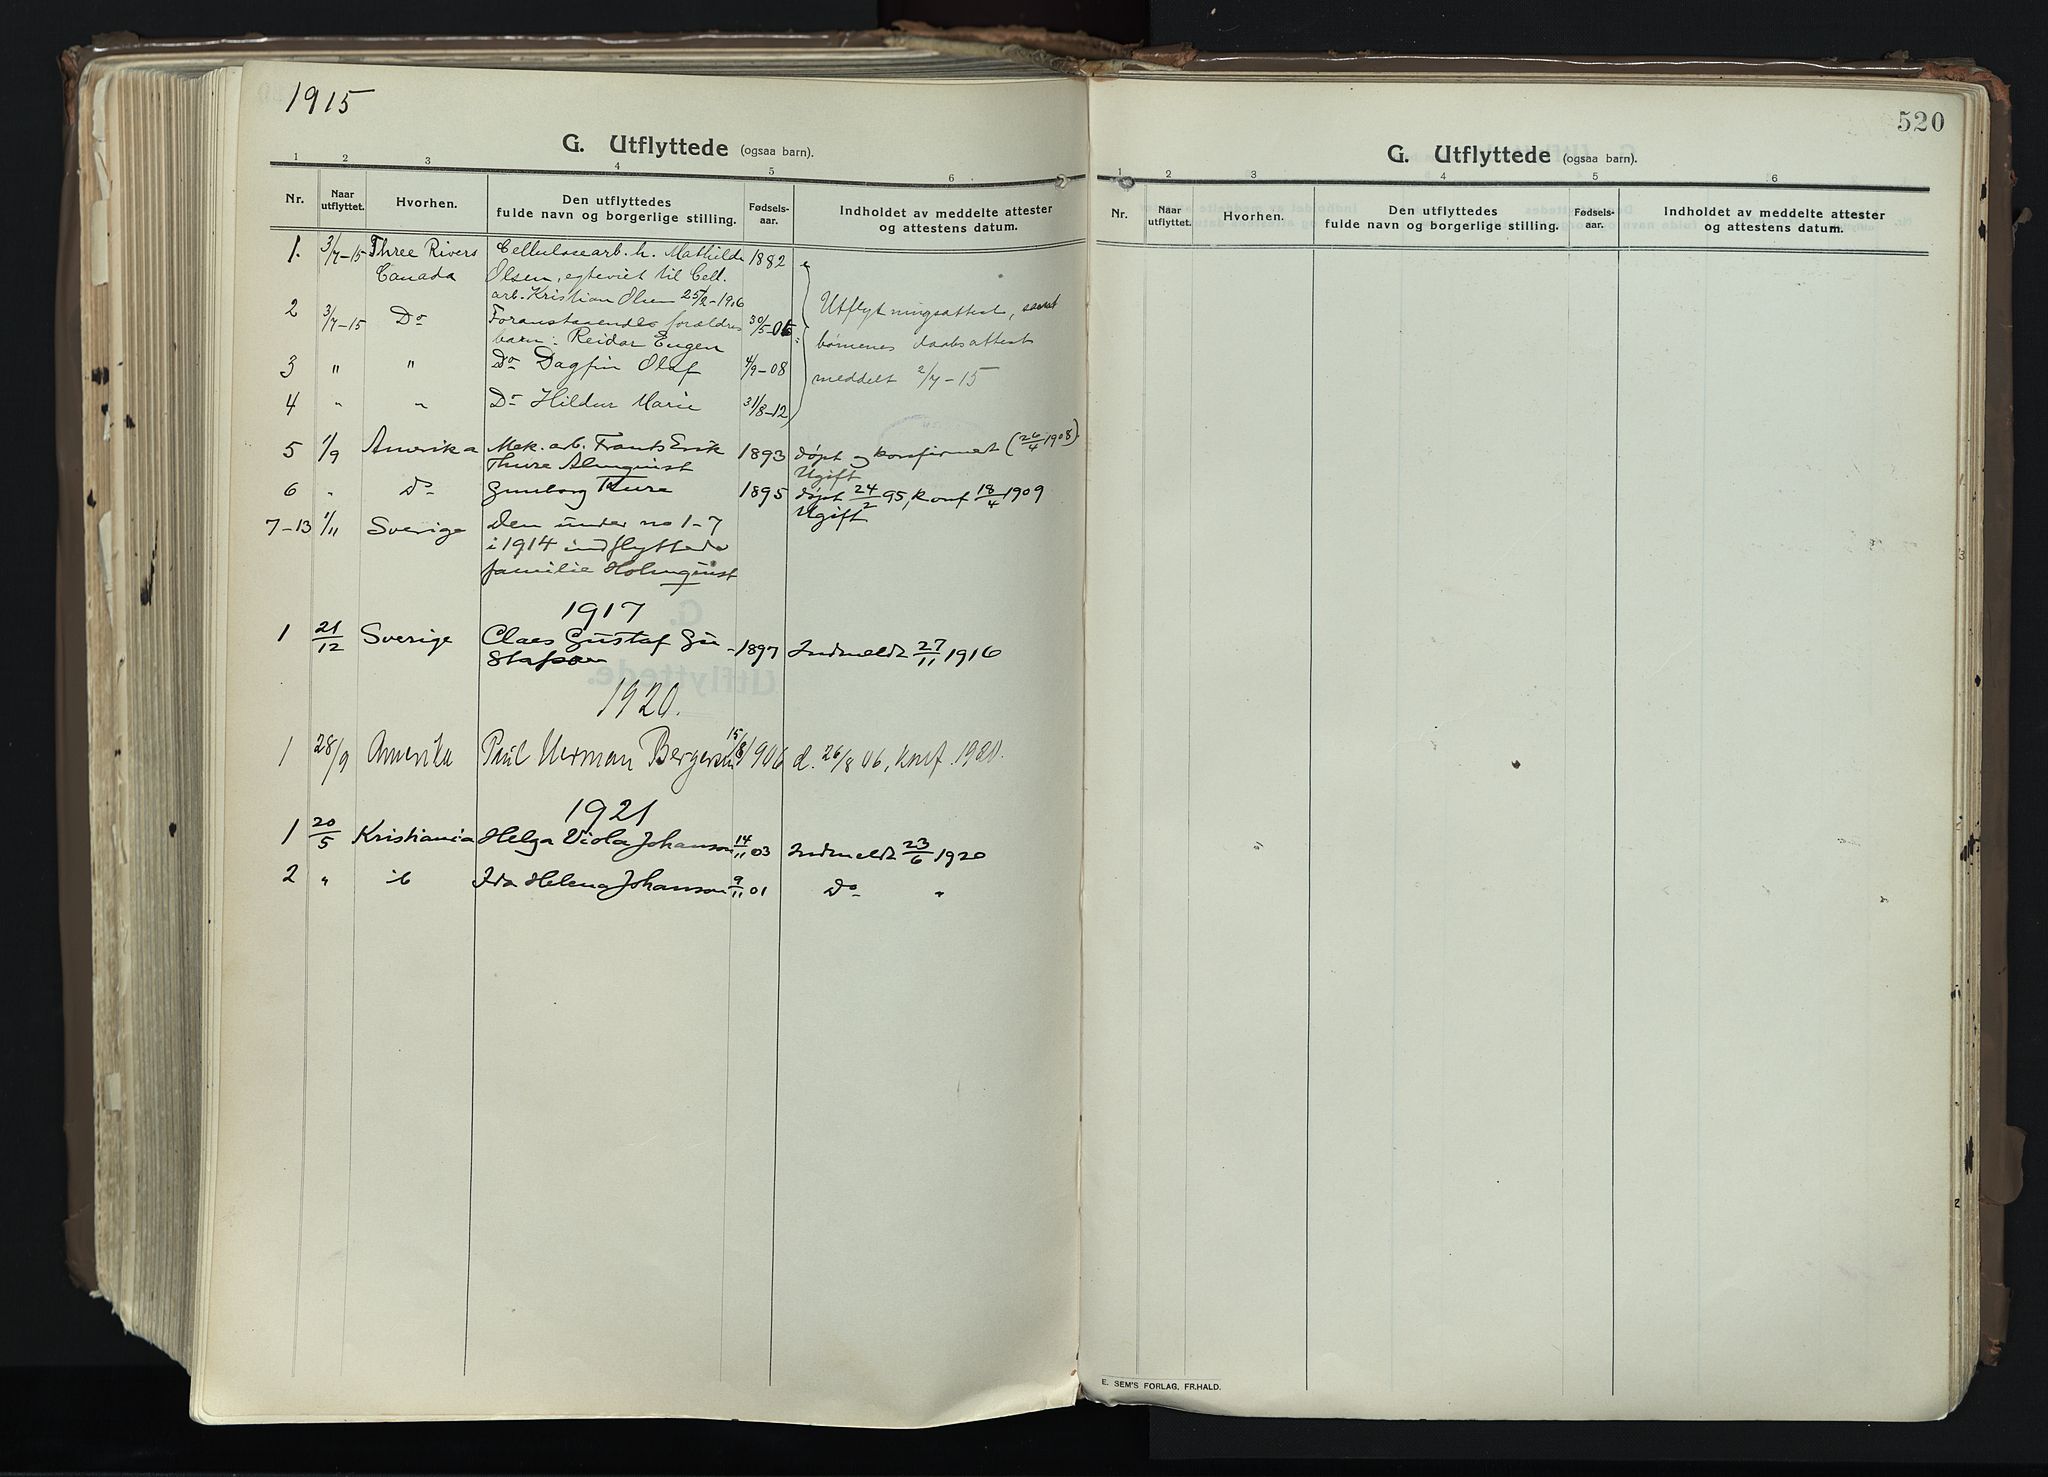 1915
G. Utflyttede (ogsaa barn).
1 2 3 4 5 6
Nr. Naar utflyttet. Hvorhen. Den utflyttedes fulde navn og borgerlige stilling. Fødsels-aar. Indholdet av meddelte attester og attestens datum.
1. 3/7-15 Three Rivers Cellulosearb. h. Mathilde 1882
Canada Olsen, egteviet til Cell.
arb. Kristian Olsen 25/2-1906
2 3/7-15 Do Foranstaaendes forældres 30/5-06
barn: Reidar Eugen
3 " " Do Dagfin Olaf 4/9-08
4 " " Do Hildur Marie 31/8-12
Utflytningsattest, samt
børnenes daabsattest
meddelt 2/7-15
5 1/9 Amerika Mek. arb. Frants Erik 1893 døpt og konfirmert (26/4 1908)
Thure Almquist Ugift
6 " Do Gunborg Thure 1895 døpt 24/2 95, konf 18/4 1909
Ugift
7-13 1/11 Sverige Den under no 1-7
i 1914 indflyttede
familie Holmquist
1917
1 21/12 Sverige Claes Gustaf Gu- 1897 Indmeldt 27/11 1916
stafson
1920.
1 28/9 Amerika Paul Herman Bergersen 15/8 1906 d. 26/8 06, konf. 1920.
1921
1 20/5 Kristiania Helga Viola Johanson 14/11 03 Indmeldt 23/6 1920
2 " ib Ida Helena Johanson 9/11 01 Do "
520
G. Utflyttede (ogsaa barn).
1 2 3 4 5 6
Nr. Naar utflyttet. Hvorhen. Den utflyttedes fulde navn og borgerlige stilling. Fødsels-aar. Indholdet av meddelte attester og attestens datum.
E. SEM'S FORLAG, FR.HALD.